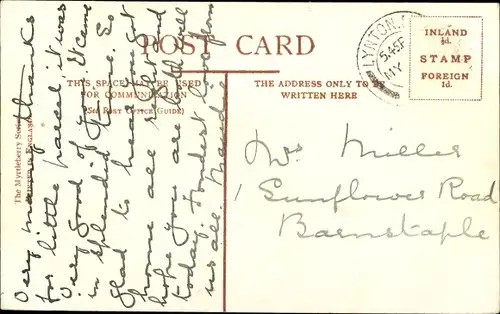 POST CARD
THIS SPACE MAY BE USED
FOR COMMUNICATION
(SEE POST OFFICE GUIDE)
THE ADDRESS ONLY TO BE
WRITTEN HERE
LYNTON
INLAND
½d.
STAMP
FOREIGN
1d.
The Myrtleberry
PRINTED IN ENGLAND
Very many thanks
for little parcel it was
Very good of you. It came
in splendid time. So
glad to hear you got
home all right and
hope you are both well
today. Fondest love from
us all. Maud.
Mrs Miller
1 Sunflower Road
Barnstaple